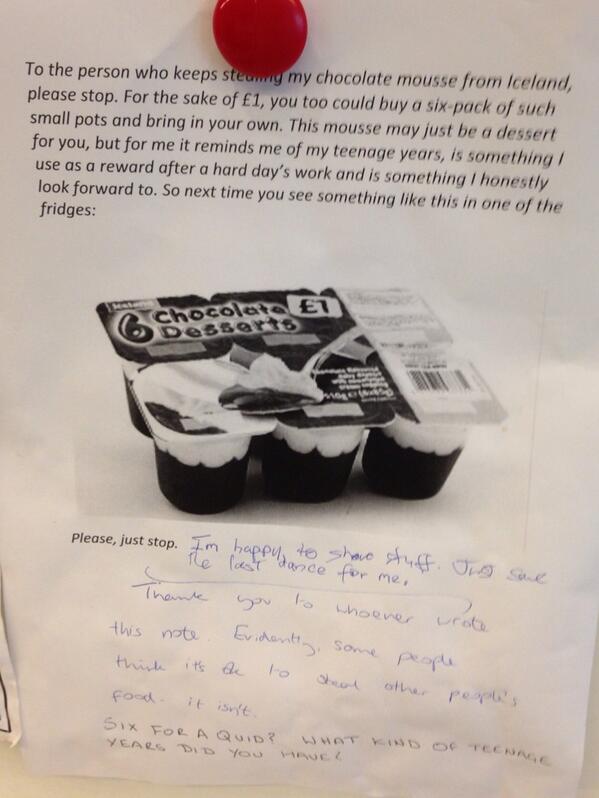 To the person who keeps stealing my chocolate mousse from Iceland,
please stop. For the sake of £1, you too could buy a six-pack of such
small pots and bring in your own. This mousse may just be a dessert
for you, but for me it reminds me of my teenage years, is something I
use as a reward after a hard day's work and is something I honestly
look forward to. So next time you see something like this in one of the
fridges:
Iceland
6 Chocolate
Desserts
£1
510g e (6x85g)
Please, just stop.
I'm happy to share stuff. Just save
the last dance for me.
Thank you to whoever wrote
this note. Evidently, some people
think it's ok to steal other people's
food. it isn't.
SIX FOR A QUID? WHAT KIND OF TEENAGE
YEARS DID YOU HAVE?